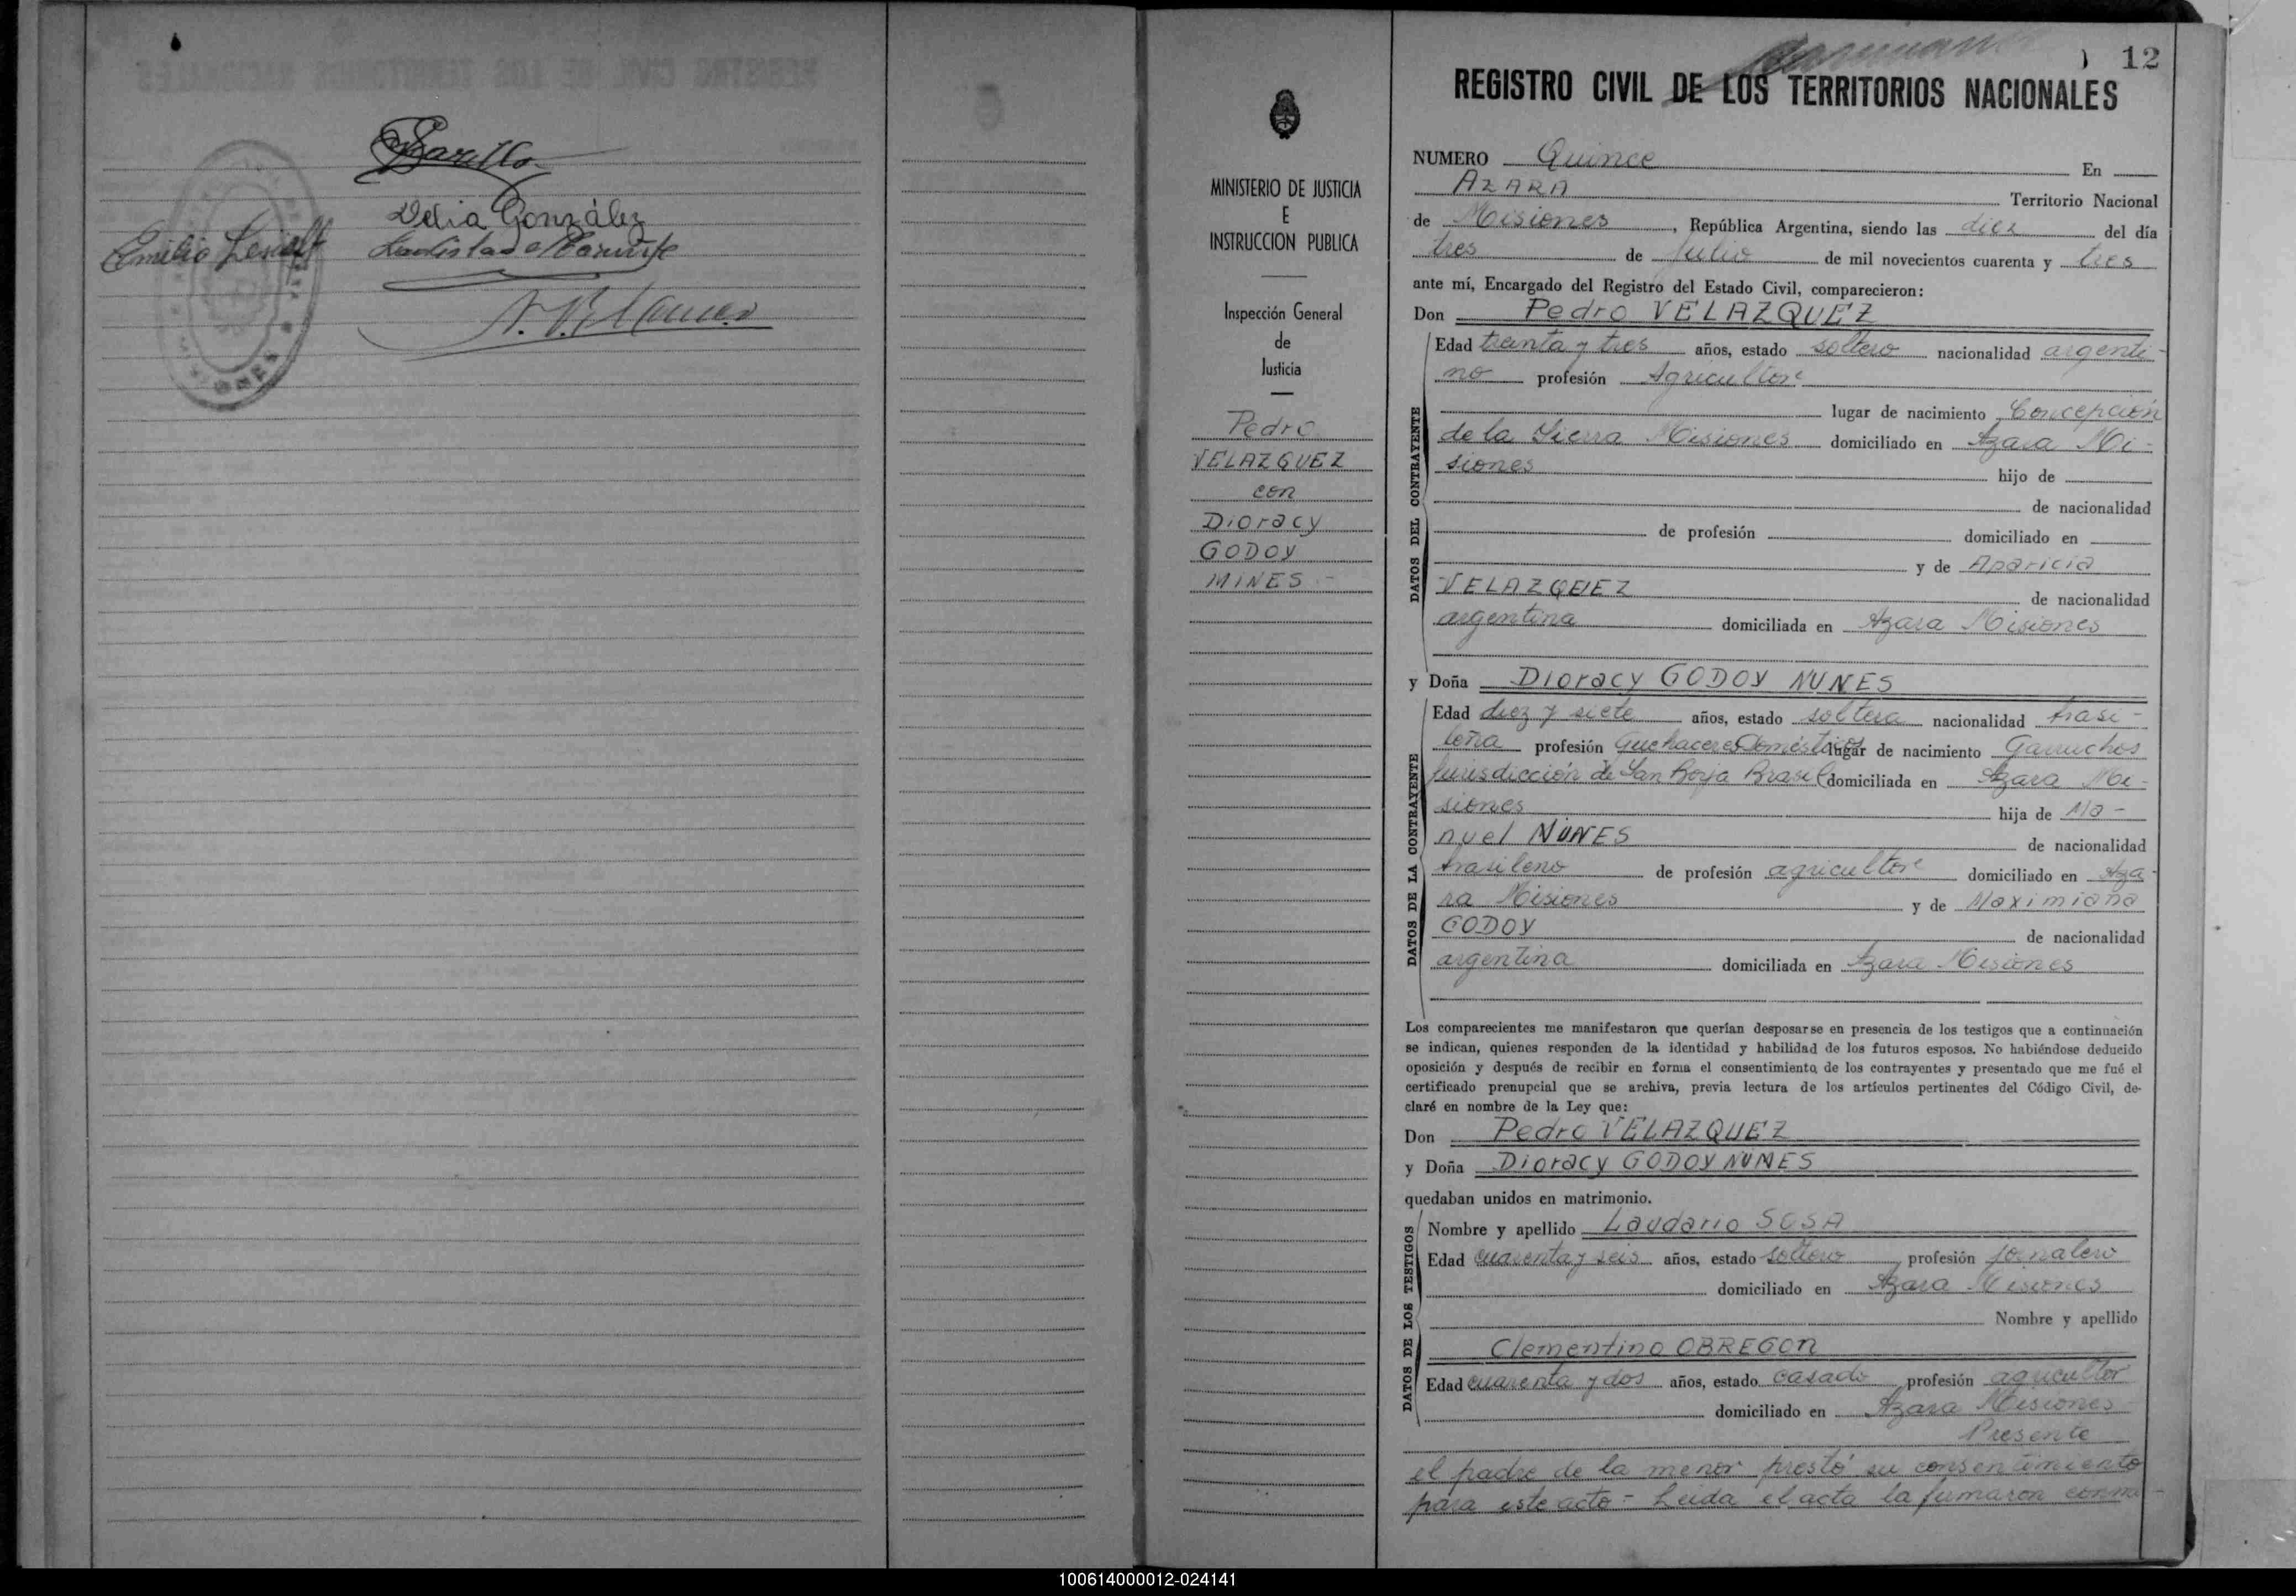 Delia González
Emilio
12
REGISTRO CIVIL DE LOS TERRITORIOS NACIONALES
MINISTERIO DE JUSTICIA
E
INSTRUCCION PUBLICA
Inspección General
de
Justicia
Pedro
VELAZQUEZ
con
Dioracy
GODOY
MINES -
NUMERO Quince En
AZARA Territorio Nacional
de Misiones, República Argentina, siendo las diez del día
tres de Julio de mil novecientos cuarenta y tres
ante mí, Encargado del Registro del Estado Civil, comparecieron:
Don Pedro VELAZQUEZ
DATOS DEL CONTRAYENTE
Edad treinta y tres años, estado soltero nacionalidad argenti-
no profesión Agricultor
lugar de nacimiento Concepción
de la Sierra Misiones domiciliado en Azara Mi-
siones hijo de
de nacionalidad
de profesión domiciliado en
y de Aparicia
VELAZQUEZ de nacionalidad
argentina domiciliada en Azara Misiones
y Doña Dioracy GODOY NUNES
DATOS DE LA CONTRAYENTE
Edad diez y siete años, estado soltera nacionalidad brasi-
leña profesión Quehaceres Domésticos lugar de nacimiento Garruchos
Jurisdicción de San Borja Brasil domiciliada en Azara Mi-
siones hija de Ma-
nuel NUNES de nacionalidad
brasileno de profesión agricultor domiciliado en Aza-
ra Misiones y de Maximiana
GODOY de nacionalidad
argentina domiciliada en Azara Misiones
Los comparecientes me manifestaron que querían desposarse en presencia de los testigos que a continuación
se indican, quienes responden de la identidad y habilidad de los futuros esposos. No habiéndose deducido
oposición y después de recibir en forma el consentimiento de los contrayentes y presentado que me fué el
certificado prenupcial que se archiva, previa lectura de los artículos pertinentes del Código Civil, de-
claré en nombre de la Ley que:
Don Pedro VELAZQUEZ
y Doña Dioracy GODOY NUNES
quedaban unidos en matrimonio.
DATOS DE LOS TESTIGOS
Nombre y apellido Laudario SOSA
Edad cuarenta y seis años, estado soltero profesión jornalero
domiciliado en Azara Misiones
Nombre y apellido
Clementino OBREGON
Edad cuarenta y dos años, estado casado profesión agricultor
domiciliado en Azara Misiones
Presente
el padre de la menor prestó su consentimiento
para este acto - Leida el acta la firmaron conmi-
100614000012-024141